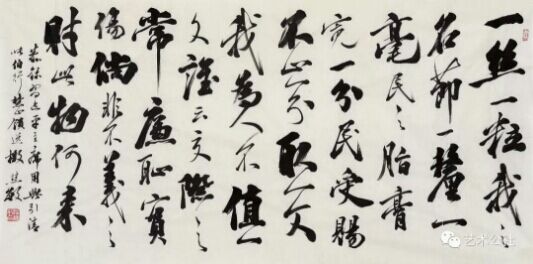 一絲一粒我之
名節一釐一
毫民之脂膏
寬一分民受賜
不止一分取一文
我為人不值一
文誰云交際之
常廉恥實
傷倘非不義之
財此物何來
恭錄習近平主席用典引清
張伯行禁饋送檄
艺术公社